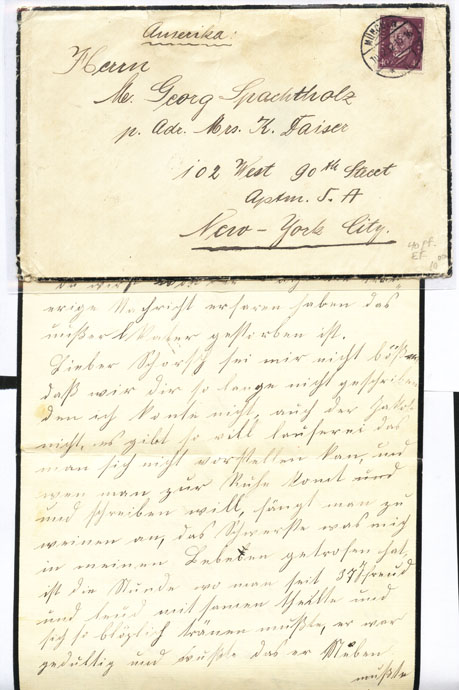 Amerika.
Herrn
M. Georg Spachtholz
p. Adr. Mrs. K. Daiser
102 West 90th Street
Aptm. 5. A
New-York City.
MÜNCHEN
40 Pf.
EF
du wirst
erige Nachricht erfaren haben das
unßer Vater gestorben ist.
Lieber Schorsch sei mir nicht böß
daß wir dir so lange nicht geschrieben
den ich konte nicht, auch der Jakob
nicht, es gibt so vill lauferei das
man sich nicht vorstellen kan, und
wen man zur Ruhe komt und
und schreiben will, fängt man zu
weinen an, das Schwerste was mich
in meinen Leben getrofen hat
ist die Stunde wo man seit 37 J freud
und leid mit samen theilte und
sich so blözlich tränen mußte, er war
gedultig und wußte das er
mußte